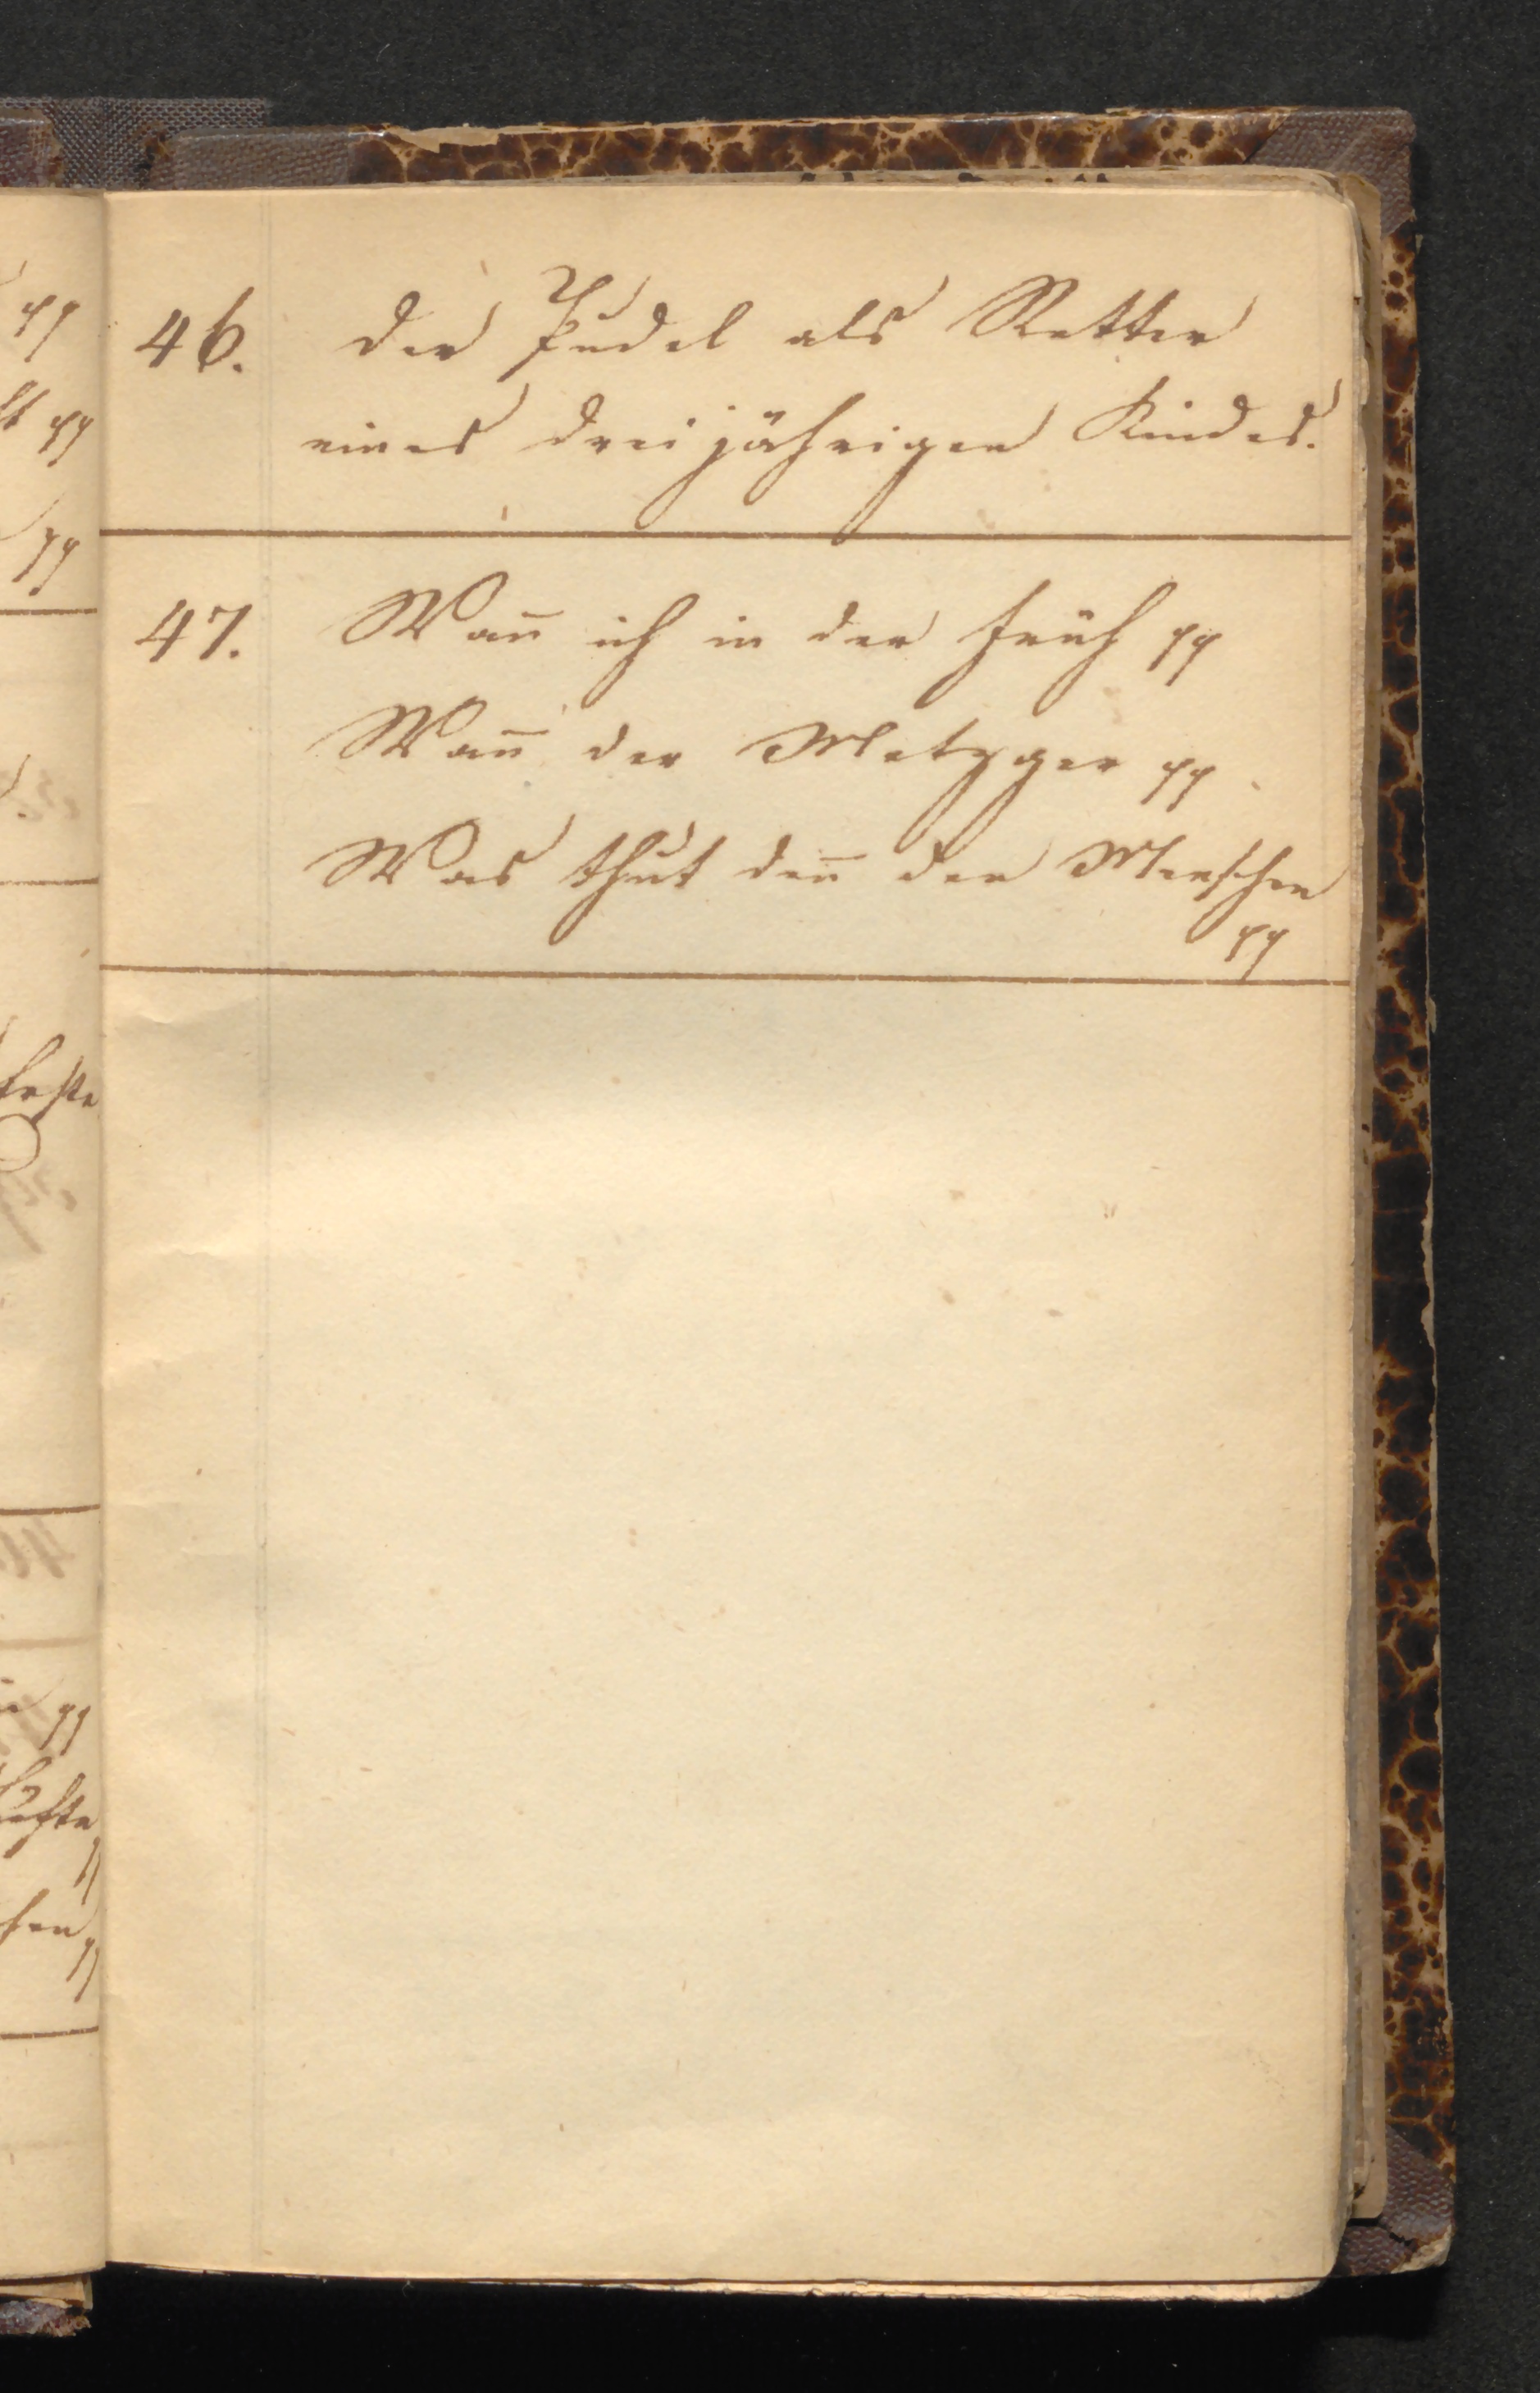 46. Der Pudel als Retter
eines dreijährigen Kindes.
47. Wan̅ ich in der Früh pp
Wan̅ der Metzger pp
Was thut den̅ den Menschen
pp